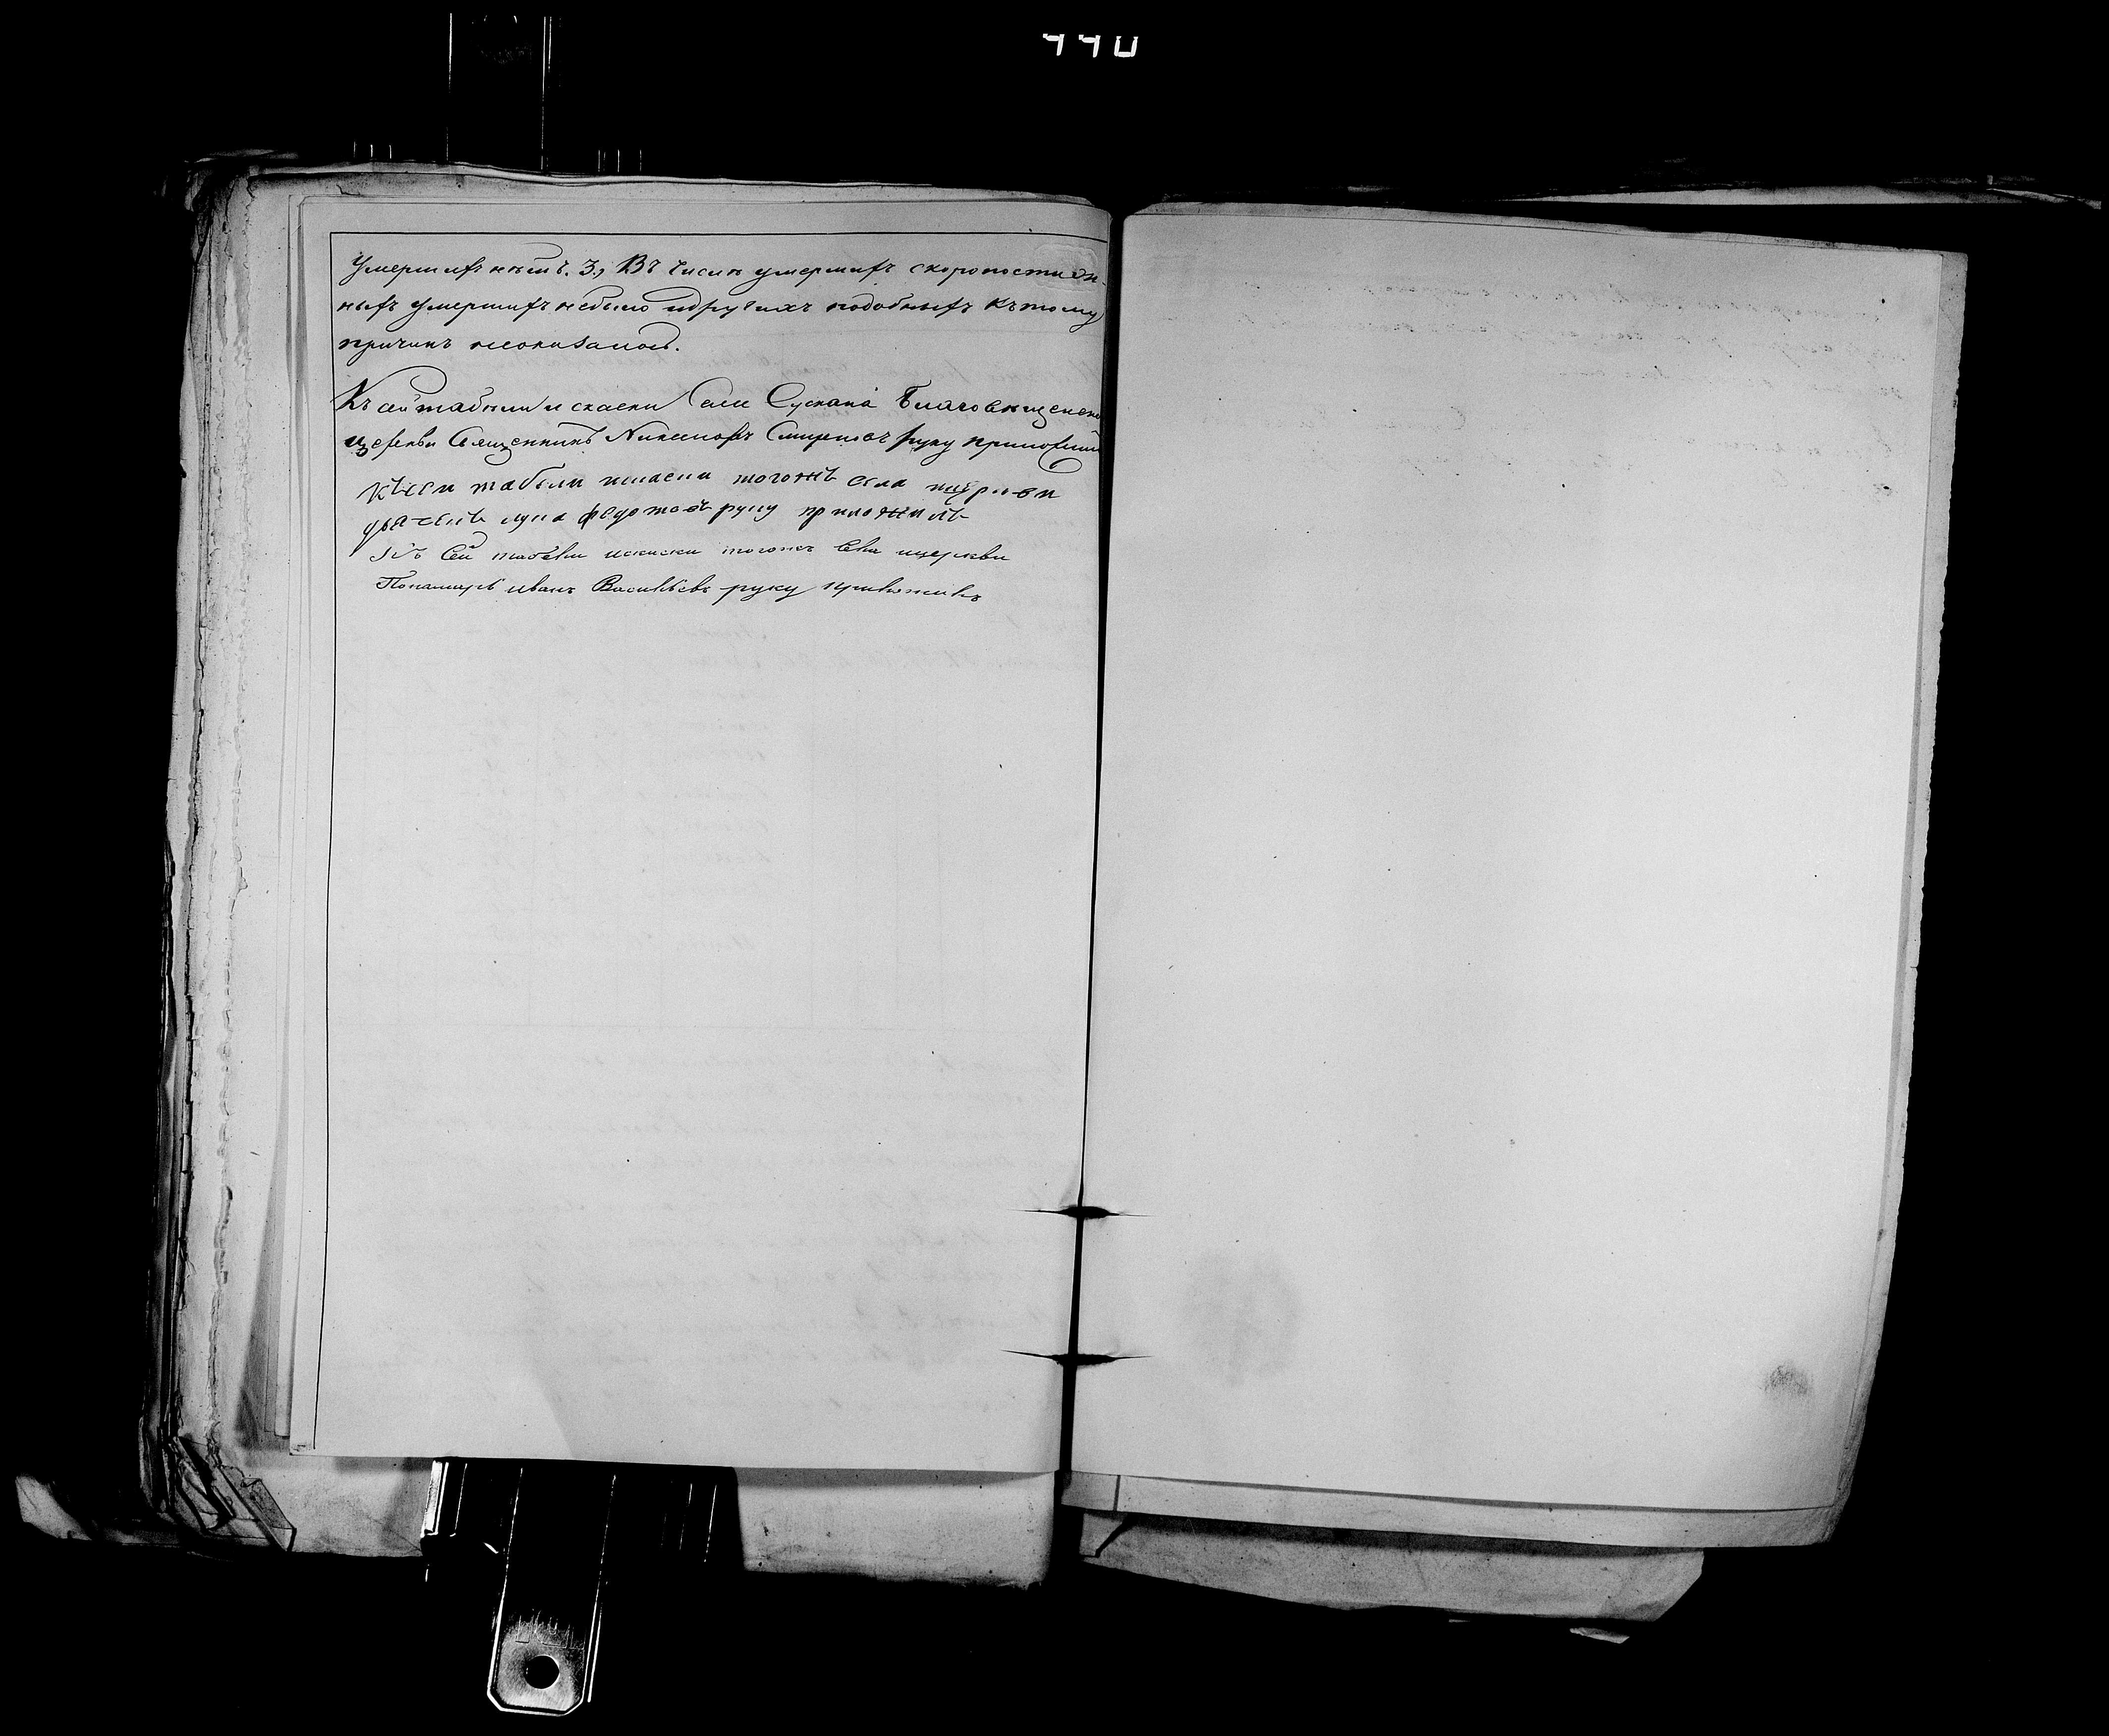 440
умершихъ нѣтъ. 3., Въ числѣ умершихъ скоропостиж-
ныхъ умершихъ небыло идругихъ подобныхъ къ тому
причинъ неоказалось.
Къ сей табели и скаски села Сускана Благовещенской
церкви Священникъ Никаноръ Смирновъ руку приложилъ
Къ сеи табели искаски тогожъ села ицеркви
дьячекъ лука федотовъ руку приложилъ
Къ Сей табели искаски тогожъ села ицеркви
Понамарь иванъ Васильевъ руку приложилъ